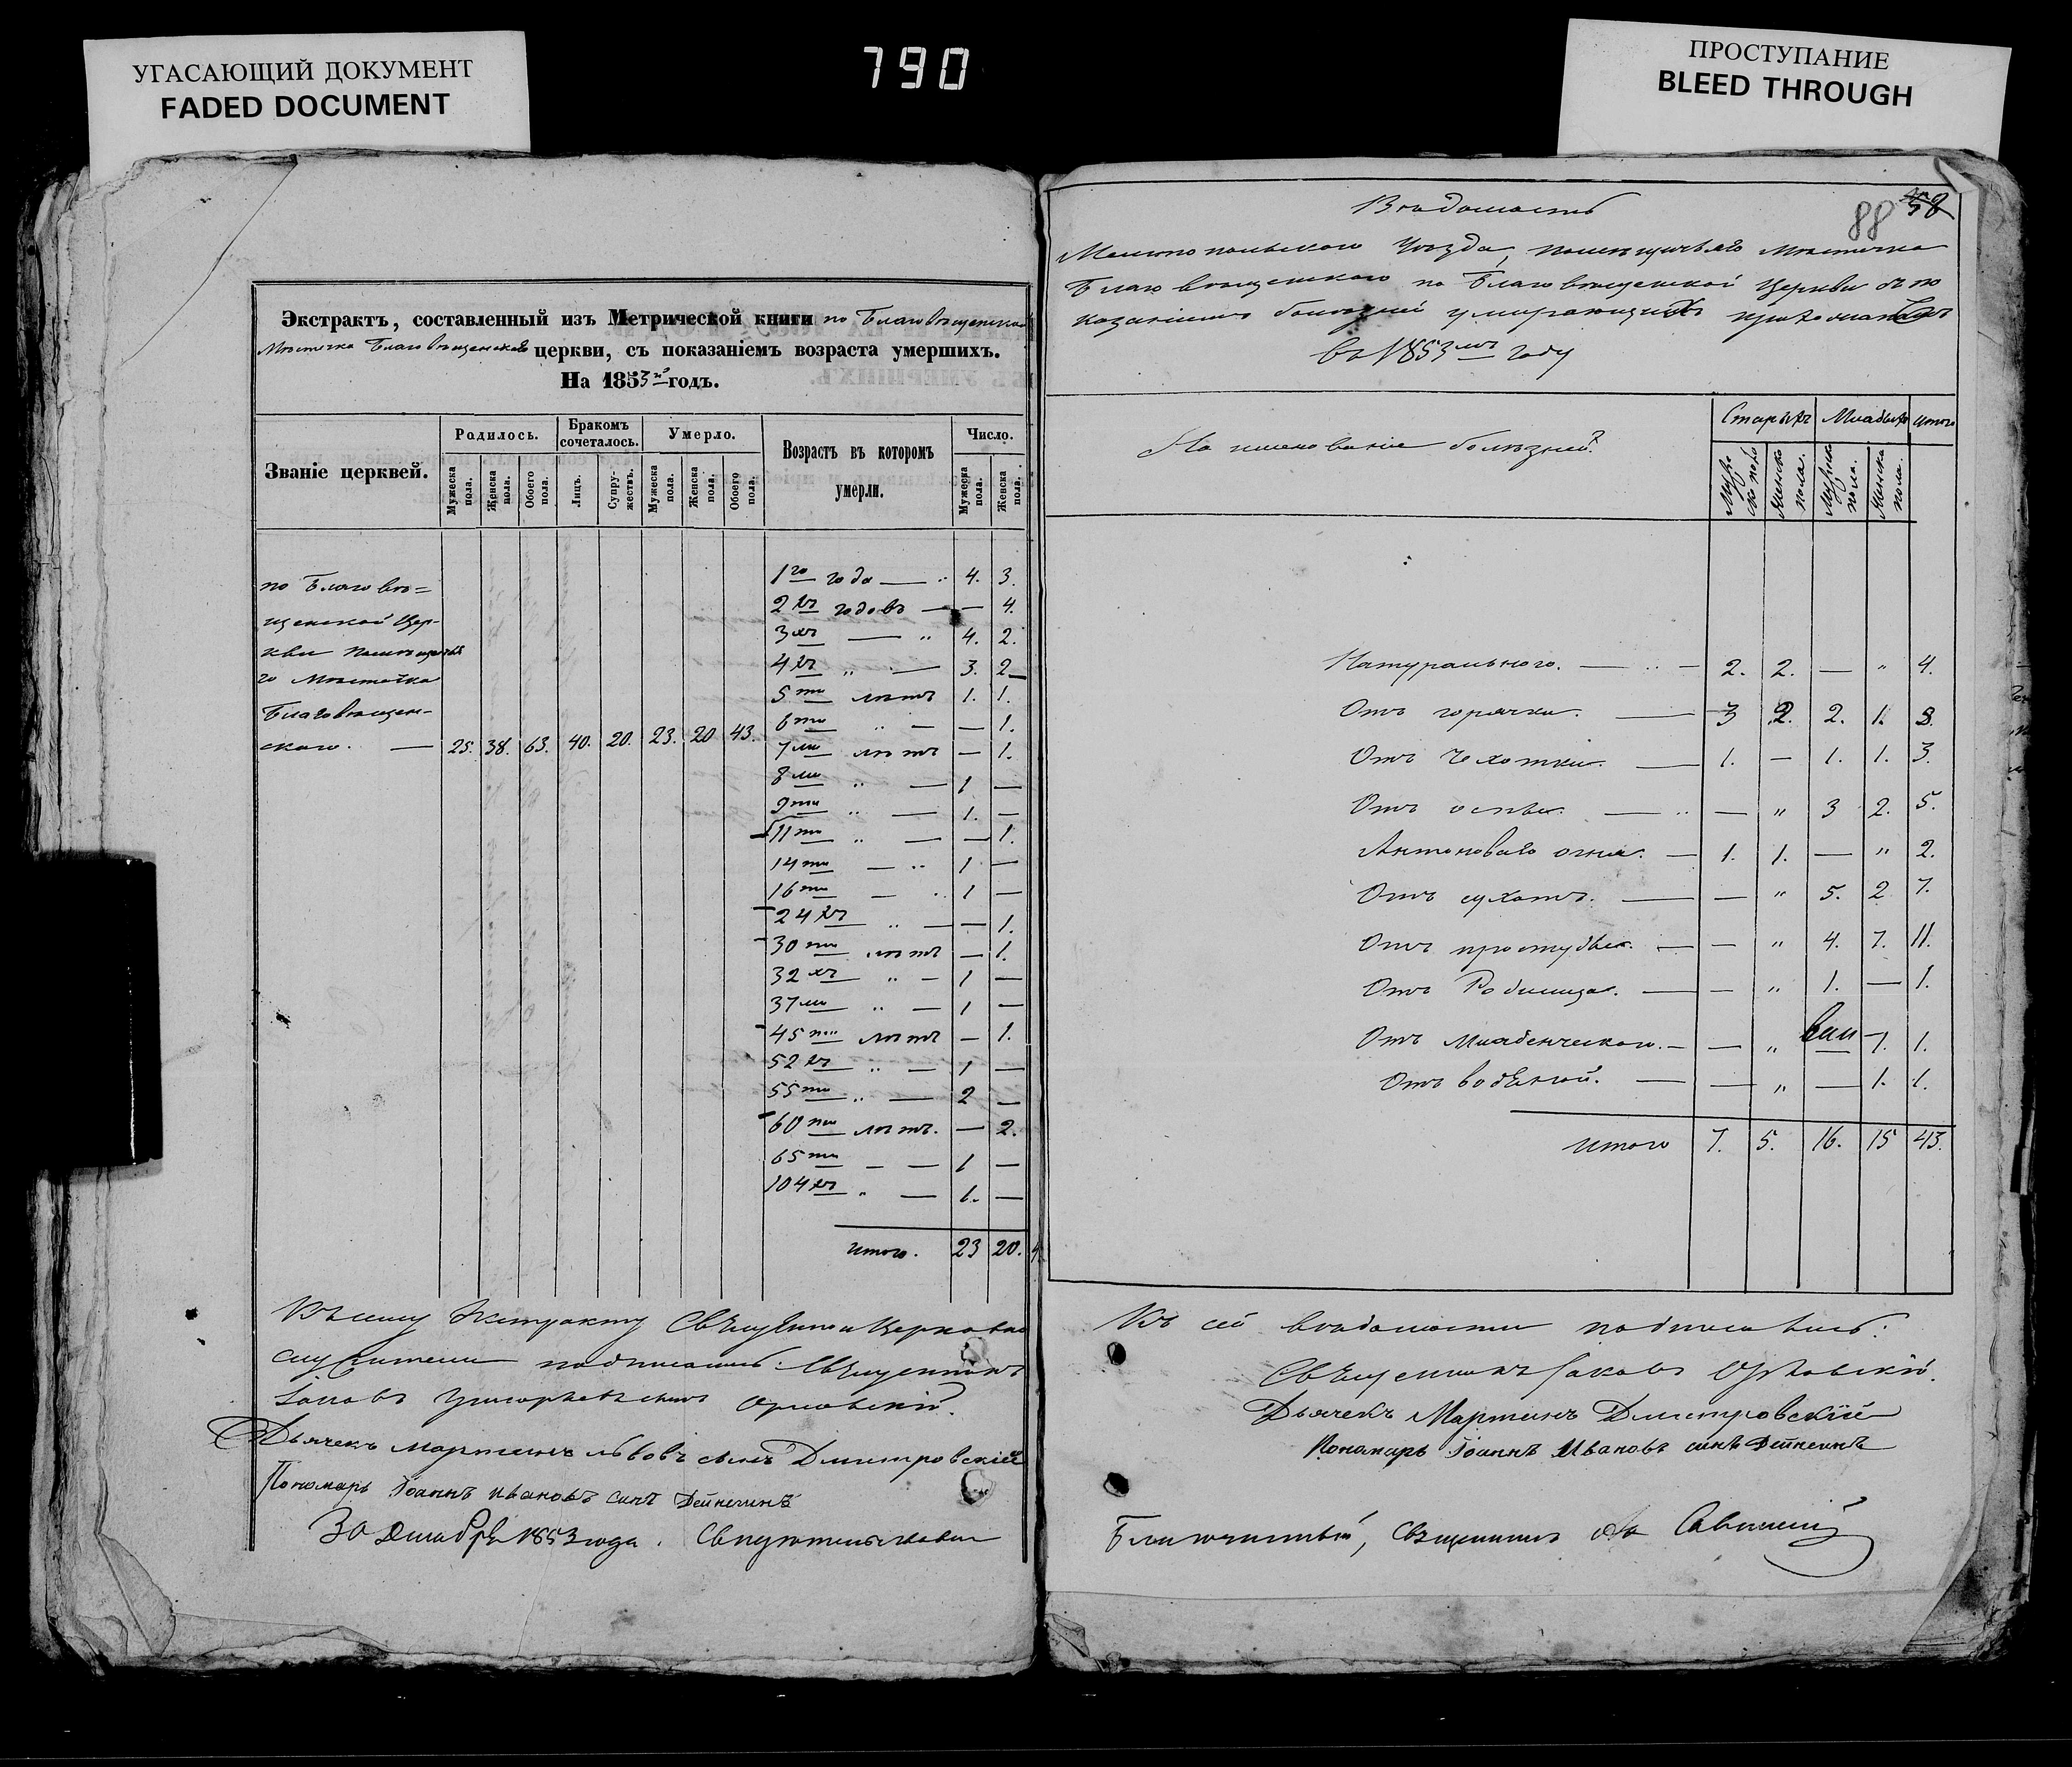 УГАСАЮЩИЙ ДОКУМЕНТ
FADED DOCUMENT
790
ПРОСТУПАНИЕ
BLEED THROUGH
Экстрактъ, составленный изъ Метрической книги по Благовѣщенской
Мѣстечка Благовѣщенскаго церкви, съ показаніемъ возраста умершихъ.
На 1853й годъ.
Званіе церквей. Родилось. Бракомъ сочеталось. Умерло. Возрастъ въ которомъ умерли. Число.
Мужеска пола. Женска пола. Обоего пола. Лицъ. Супружествъ. Мужеска пола. Женска пола. Обоего пола. Мужеска пола. Женска пола.
по Благовѣ=
щенской Цер-
кви помѣщичья
го Мѣстечка
Благовѣщен-
скаго. — 25. 38. 63. 40. 20. 23. 20 43.
1го года — " 4. 3.
2хъ годовъ — — 4.
3хъ — " 4. 2.
4хъ " — 3. 2
5ти лѣтъ 1. 1.
6ти " — — 1.
7ми лѣтъ — 1.
8ми " — 1 —
9ти " — 1. —
11ти " — — 1.
14ти — " 1 —
16ти — " 1 —
24хъ " — — 1.
30ти лѣтъ — 1.
32хъ " — 1 —
37ми " — 1 —
45ти лѣтъ — 1.
52хъ " — 1 —
55ти " — 2 —
60ти лѣтъ. — 2.
65ти — — 1 —
104хъ " — 1. —
Итого. 23 20.
Къ сему Экстракту Священно и Церковно
служители подписались: Священникъ
Іаковъ Орловскій.
Дьячекъ Мартинъ Львовъ сынъ Дмитровскій
Пономарь Іоаннъ Ивановъ синъ Дейнекинъ
30 Декабря 1853 года. Свидѣтельствовалъ
58
88
Вѣдомость
Мелитопольскаго Уѣзда, помѣщичьяго мѣстечка
Благовѣщенскаго по Благовѣщенской Церкви съ по
казаніемъ болѣзней умирающихъ прихожанъ
въ 1853мъ году
Наименованіе болѣзней. Старыхъ Младыхъ Итого
Мужеско поло Женска пола. Мужеска пола. Женска пола.
Натуральною. — " — 2. 2. — " 4.
Отъ горячки. — 3 2. 2. 1. 8.
Отъ Чахотки. — 1. — 1. 1. 3.
Отъ оспы. — " — " 3 2. 5.
Антоноваго огня. — 1. 1. — " 2.
Отъ сухотъ. — — " 5. 2 7.
Отъ простуды. — — " 4. 7. 11.
Отъ Родимца. — — " 1. — 1.
Отъ Младенческой. — — " — 1. 1.
Отъ водяной. — — " — 1. 1.
Итого 7. 5. 16. 15 43.
Къ сей вѣдомости подписались:
Священникъ Іаковъ Орловскій.
Дьячекъ Мартинъ Дмитровскій
Пономарь Іоаннъ Ивановъ синъ Дейнекинъ
Благочинный, Священникъ